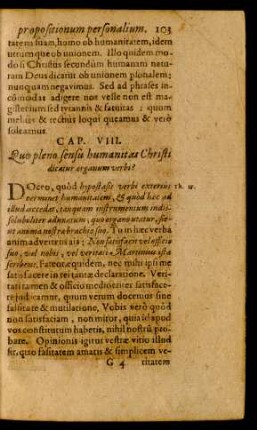 propositionum personalium. 103
tatem suam, homo ob humanitatem, idem
utrumque ob unionem. Illo quidem mo-
do si Christus secundùm humanam natu-
ram Deus dicatur ob unionem
nunquam negavimus. Sed ad phrases in-
cómodas adigere nos velle non est ma-
gisterium sed tyrannis & fatuitas: quum
melius & rectius loqui queamus & verò
soleamus.
CAP. VIII.
Quo pleno sensu humanitas Christi
dicatur organum verbi?
DOceo, quòd hypostasis verbi exterius
terminet humanitatem, & quòd hæc ad
illud accedat, tanquam instrumentum indis-
solubiliter adunatum, quo organo utatur, sic-
ut anima nostra brachio suo. Tum hæc verba
animadversionis: Non satisfacit vel officio
suo, vel nobis, vel veritati, Martinius ista
scribens. Fateor equidem, nec mihi ipsi me
satisfacere in rei tantæ declaratione. Veri-
tati tamen & officio mediocriter satisface-
re judicamur, quum verum docemus sine
falsitate & mutilatione. Vobis verò quòd
non satisfaciam, non miror, quia id apud
vos constitutum habetis, nihil nostrû pro-
bare. Opinionis igitur vestræ vitio illud
fit, quo falsitatem amatis & simplicem ve-
G 4 ritatem